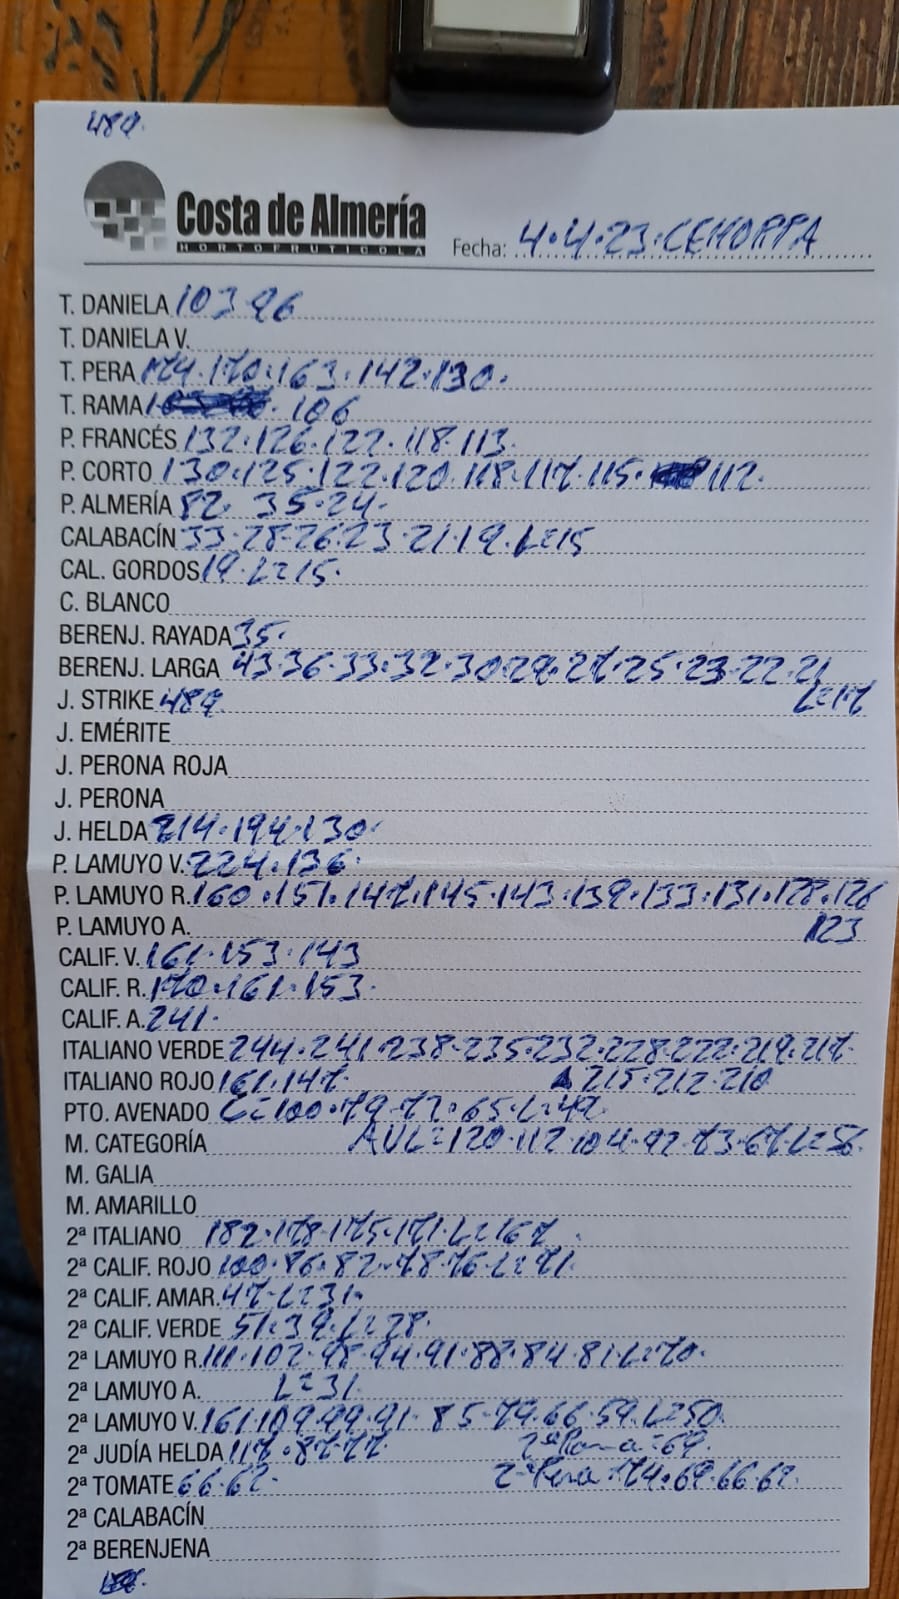 489.
Costa de Almería
HORTOFRUTICOLA
Fecha: 4.4.23.CEHORPA
T. DANIELA 103 96
T. DANIELA V.
T. PERA 174.170.163.142.130.
T. RAMA 106
P. FRANCÉS 132.126.122.118.113.
P. CORTO 130.125.122.120.118.117.115. 112.
P. ALMERÍA 82. 35.24.
CALABACÍN 33.28.26.23.21.19.L=15
CAL. GORDOS 19.L=15.
C. BLANCO
BERENJ. RAYADA 35.
BERENJ. LARGA 43.36.33.32.30.29.27.25.23.22.21
L=17
J. STRIKE 489
J. EMÉRITE
J. PERONA ROJA
J. PERONA
J. HELDA 214.194.130.
P. LAMUYO V. 224.136.
P. LAMUYO R. 160.151.147.145.143.139.133.131.128.126
123
P. LAMUYO A.
CALIF. V. 161.153.143
CALIF. R. 170.161.153.
CALIF. A. 241.
ITALIANO VERDE 244.241.238.235.232.228.222.219.217.
215.212.210
ITALIANO ROJO 161.147.
PTO. AVENADO C=100.79.72.65.L=49.
M. CATEGORÍA AVL=120.112.104.92.73.67.L=56.
M. GALIA
M. AMARILLO
2ª ITALIANO 182.178.175.171.L=167.
2ª CALIF. ROJO 100.86.82.78.76.L=71.
2ª CALIF. AMAR. 47.L=31.
2ª CALIF. VERDE 51.39.L=28.
2ª LAMUYO R. 111.102.98.94.91.88.84.81.L=70.
2ª LAMUYO A. L=31.
2ª LAMUYO V. 161.109.99.91.85.79.66.59.L=50.
2ª JUDÍA HELDA 117.87.77 2ª Rama=69.
2ª TOMATE 66.62. 2ª Pera=74.69.66.62.
2ª CALABACÍN
2ª BERENJENA